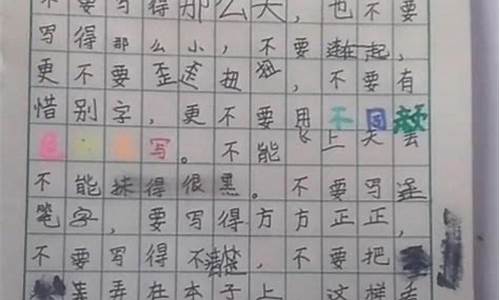 不要写得那么大，也不要
写得那么小，不要连在一起，
更不要歪歪扭扭，不要有
惜别字，更不要用不同颜
色写。不能飞上天去
不能抹得很黑。不要写连
笔字，要写得方方正正，
不要写得不清楚，不要把
弄在本子上